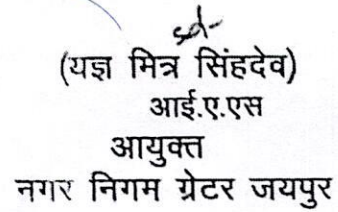 sd-
(यज्ञ मित्र सिंहदेव)
आई.ए.एस
आयुक्त
नगर निगम ग्रेटर जयपुर